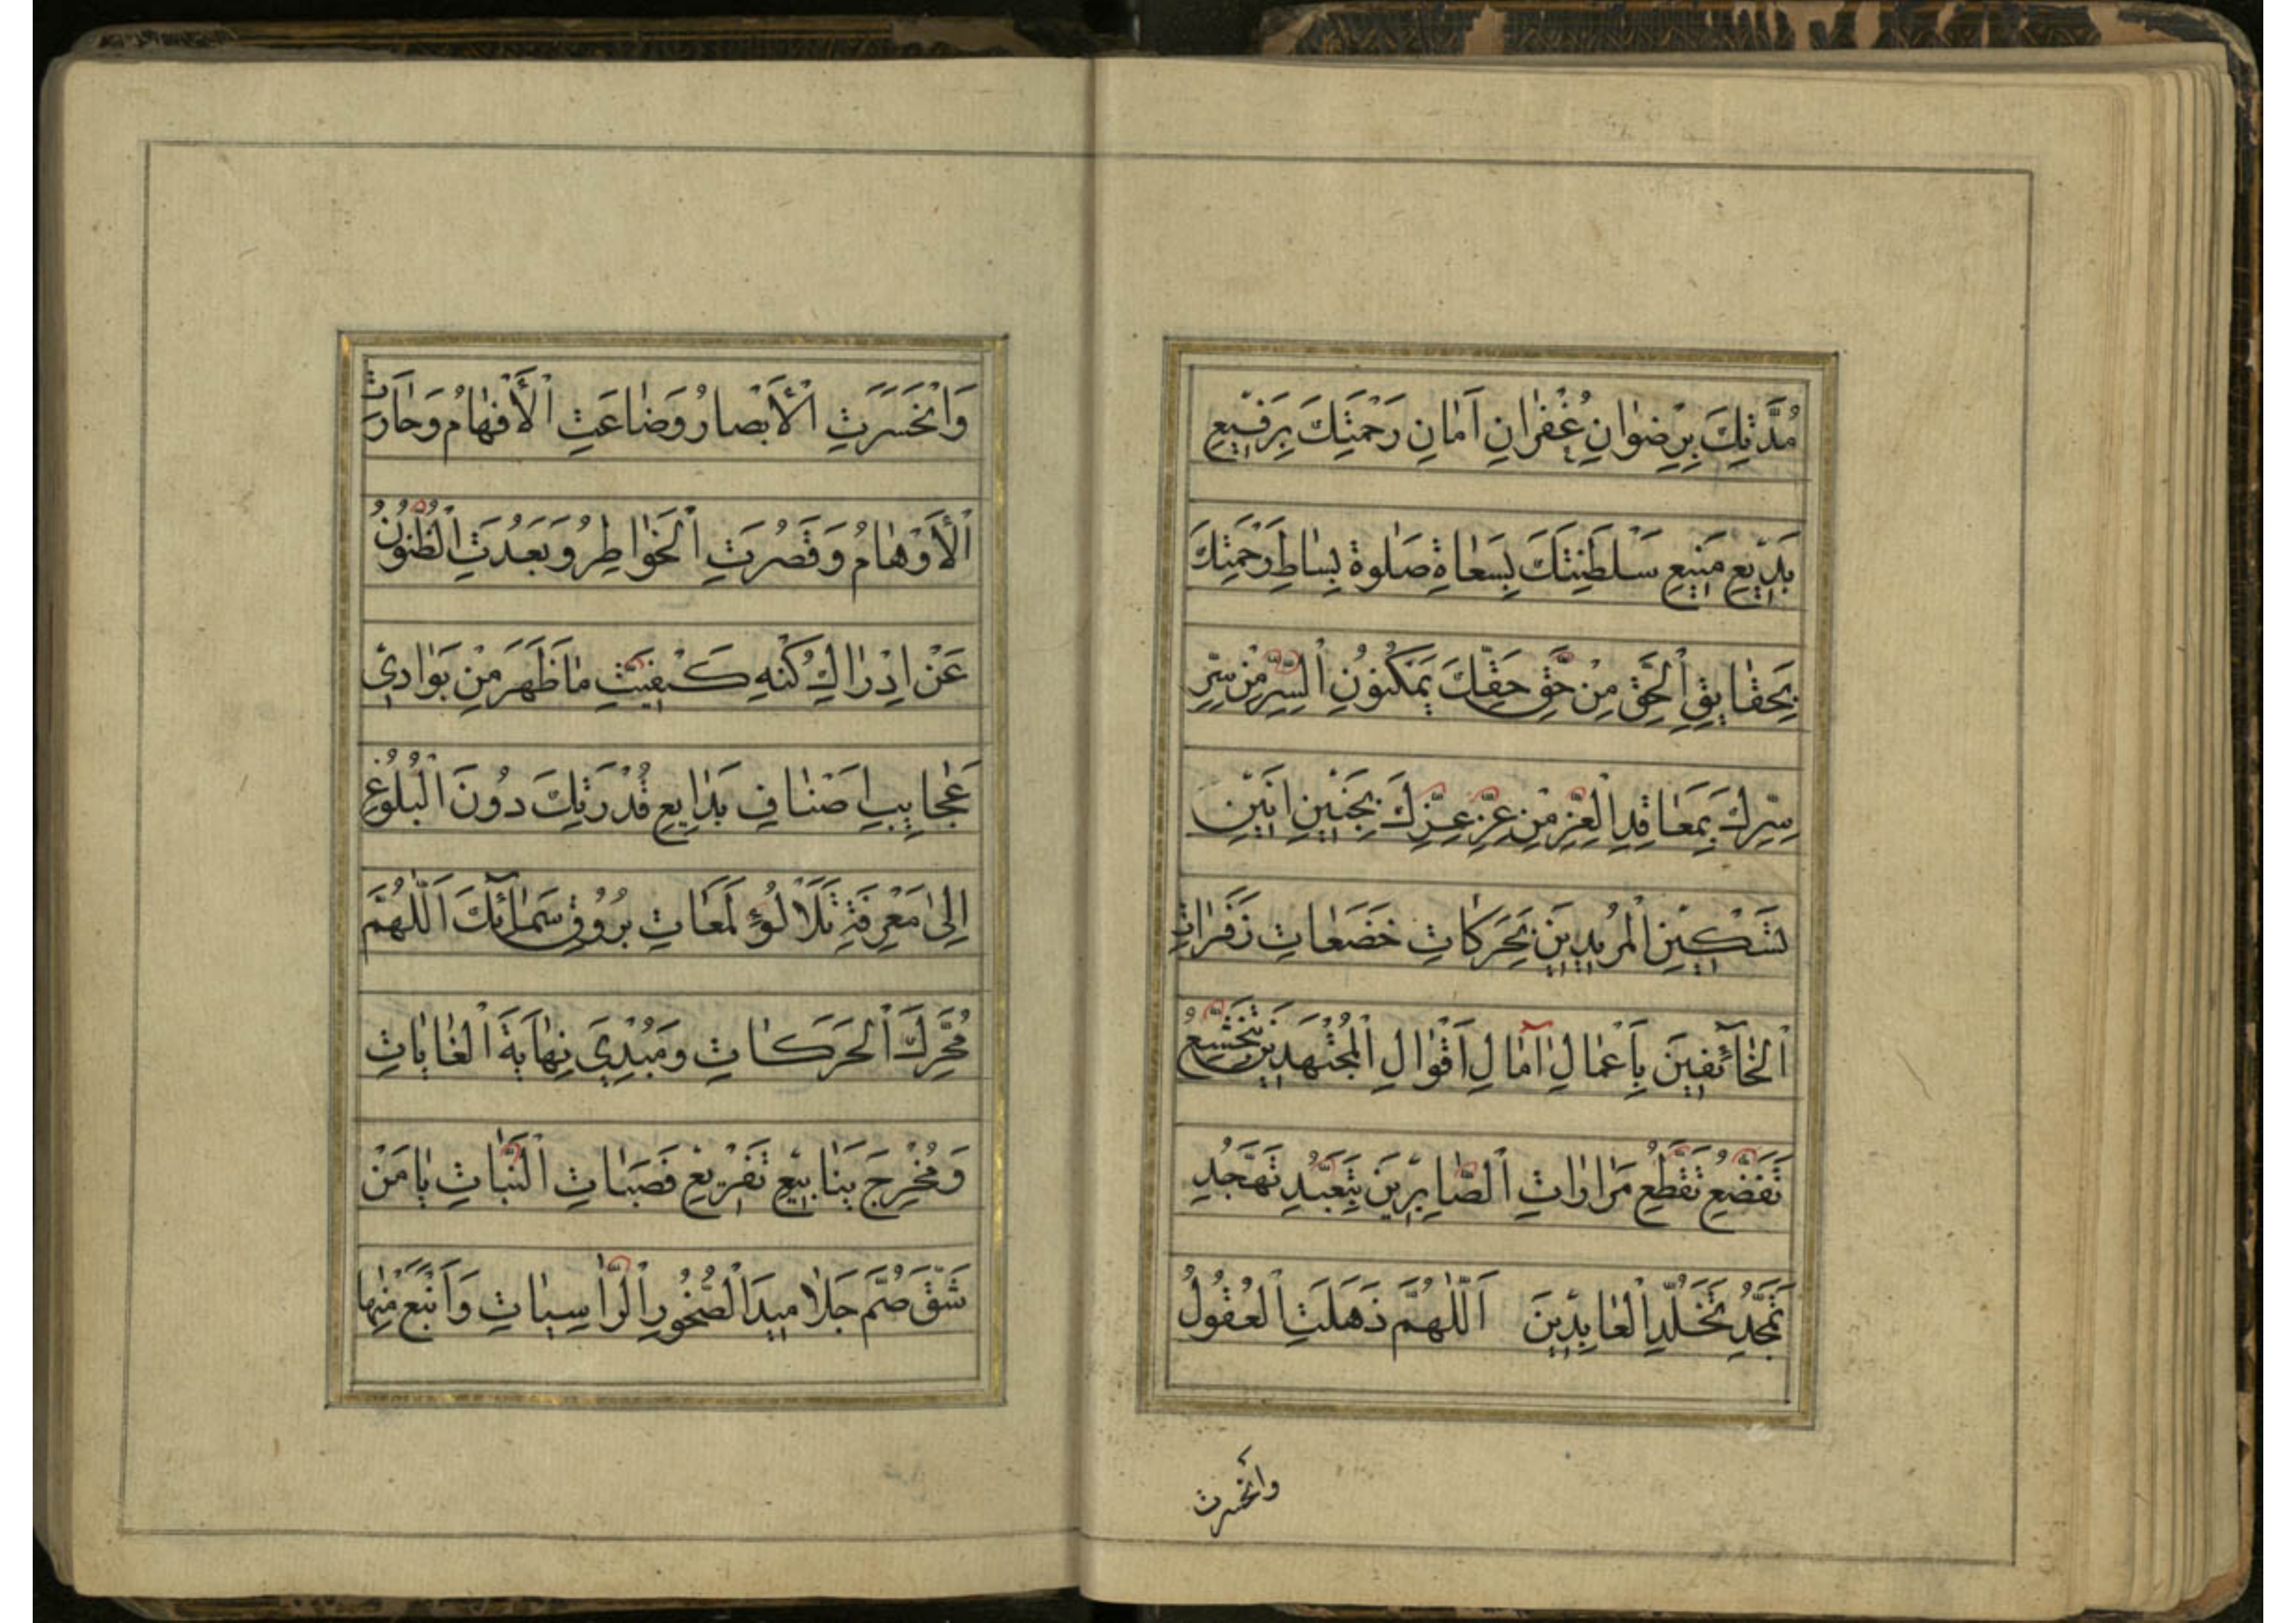 مُدَّتِكَ بِرِضْوٰانِ غُفْرٰانِ اَمٰانِ رَحْمَتِكَ بِرَفيعِ
بَديعِ مَنيعِ سَلْطَنَتِكَ بِسَعٰاةِ صَلٰوةِ بِسٰاطِ رَحْمَتِكَ
بِحَقٰايِقِ اْلحَقِّ مِنْ حَقِّ حَقِّكَ بِمَكْنُونِ اْلسِّرِّ مِنْ سِرِّ
سِرِّكَ بِمَعٰاقِدِ اْلعِزِّ مِنْ عِزِّ عِزِّكَ بِحَنينِ اَنينِ
تَسْكينِ اْلمُريدينَ بِحَرَكٰاتِ خَضَعٰاتِ زَفَرٰاتِ
اْلخٰآئفينَ بِاَعْمٰالِ اٰمٰالِ اَقْوٰالِ اْلمُجْتَهِدينَ بِتَخَشُّعِ
تَخَضُّعِ تَقَطُّعِ مَرٰارٰاتِ اْلصّٰابِرينَ بِتَعَبُّدِ تَهَجُّدِ
تَمَجُّدِ تَجَلُّدِ اْلعٰابِدينَ اَللّٰهُمَّ ذَهَلَتِ اْلعُقُولُ
وانحسرت
وَانْحَسَرَتِ اْلأَبْصٰارُ وَضٰاعَتِ اْلأَفْهٰامُ وَحٰارَتِ
اْلأَوْهٰامُ وَقَصُرَتِ اْلخَوٰاطِرُ وَبَعُدَتِ اْلظُّنُونُ
عَنْ اِدْرٰاكِ كُنْهِ كَيْفِيَّتِ مٰا ظَهَرَ مِنْ بَوٰادي
عَجٰايِبِ اَصْنٰافِ بَدٰايِعِ قُدْرَتِكَ دُونَ اْلبُلُوغِ
اِلىٰ مَعْرِفَةِ تَلَأْلُؤِ لَمَعٰاتِ بُرُوقِ سَمٰآئِكَ اَللّٰهُمَّ
مُحَرِّكَ اْلحَرَكٰاتِ وَمُبْدِئَ نِهٰايَةَ اْلغٰايٰاتِ
وَمُخْرِجَ يَنٰابيعِ تَفْريعِ قَصَبٰاتِ اْلنَّبٰاتِ يٰا مَنْ
شَقَّ صُمَّ جَلٰاميدَ اْلصُّخُورِ اْلرّٰاسِيٰاتِ وَاَنْبَعَ مِنْهٰا